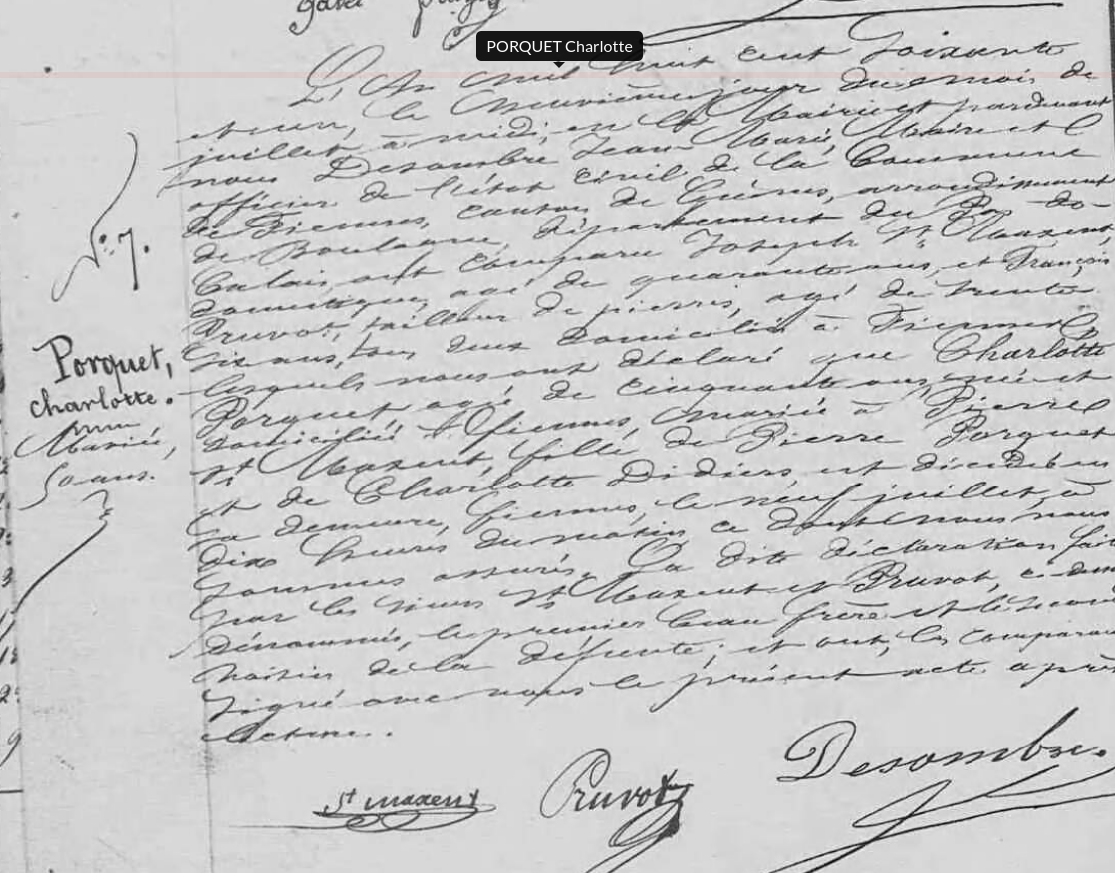 PORQUET Charlotte
L'An mil huit cent soixante
et un, le neuvième jour du mois de
juillet à midi, en la Mairie et pardevant
nous Desombre Jean Marie, Maire et
officier de l'état civil de la Commune
de Fiennes, canton de Guines, arrondissement
de Boulogne, département du Pas-de-
Calais, ont comparu Joseph St Maxent,
domestique, agé de quarante ans, et François
Pruvot, tailleur de pierres, agé de trente
six ans, tous deux domiciliés à Fiennes
lesquels nous ont déclaré que Charlotte
Porquet agé de cinquante ans, née et
domiciliée à Fiennes, mariée à Pierre
St Maxent, fille de Pierre Porquet
et de Charlotte Didiers, est décédée en
sa demeure, Fiennes, le neuf juillet, à
dix heures du matin, ce dont nous nous
sommes assurés. La dite déclaration fait
par les sieurs St Maxent et Pruvot, 
dénommés, le premier beau frère et le
voisin de la défunte; et ont, les
signé avec nous le présent acte aprè
lecture.
No. 7.
Porquet,
Charlotte.
Mariée,
50 ans.
St maxent
Pruvot
Desombre.